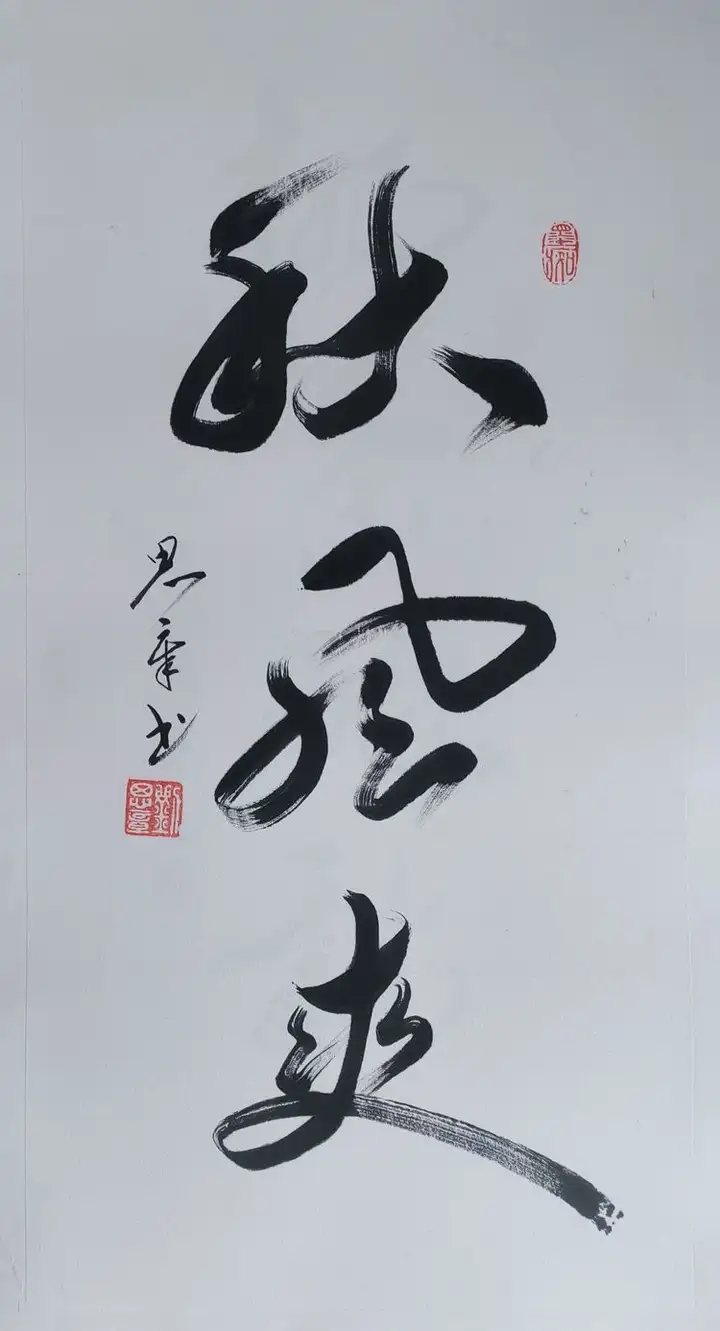 秋风爽
思章书